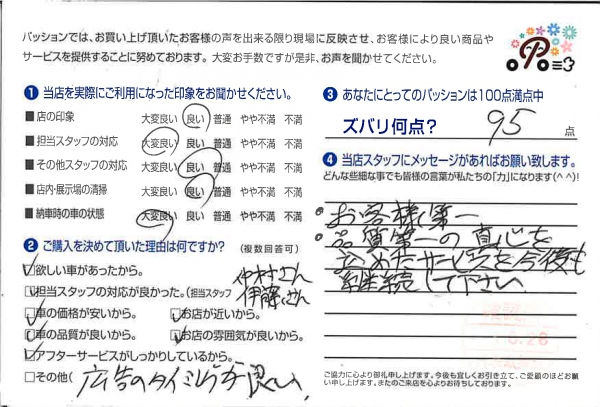 パッションでは、お買い上げ頂いたお客様の声を出来る限り現場に反映させ、お客様により良い商品や
サービスを提供することに努めております。 大変お手数ですが是非、お声を聞かせてください。
❶ 当店を実際にご利用になった印象をお聞かせください。
■店の印象 大変良い 良い 普通 やや不満 不満
■担当スタッフの対応 大変良い 良い 普通 やや不満 不満
■その他スタッフの対応 大変良い 良い 普通 やや不満 不満
■店内・展示場の清掃 大変良い 良い 普通 やや不満 不満
■納車時の車の状態 大変良い 良い 普通 やや不満 不満
❷ ご購入を決めて頂いた理由は何ですか？ (複数回答可)
欲しい車があったから。
担当スタッフの対応が良かった。(担当スタッフ 仲村さん
伊藤さん
車の価格が安いから。 お店が近いから。
車の品質が良いから。 お店の雰囲気が良いから。
アフターサービスがしっかりしているから。
□その他( 広告のタイミングが良い
❸ あなたにとってのパッションは100点満点中
ズバリ何点？ 95 点
❹ 当店スタッフにメッセージがあればお願い致します。
どんな些細な事でも皆様の言葉が私たちの「力」になります(^^)!
・お客様第一
・品質第一の真心を
込めたサービスを今後も
継続して下さい
ご協力に心より御礼申し上げます。今後も宜しくお引き立て、ご愛顧のほどお願
い申し上げます。またのご来店を心よりお待ちしております。